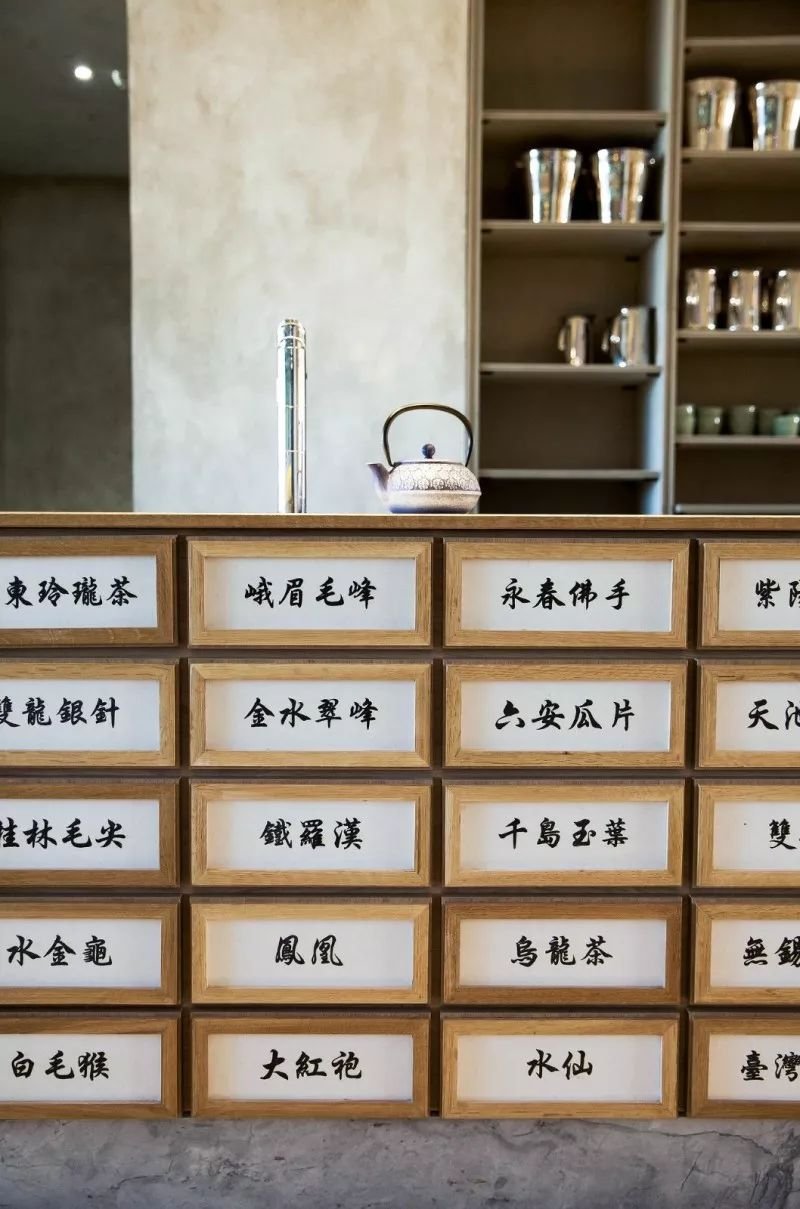 東玲瓏茶
峨眉毛峰
永春佛手
紫
雙龍銀針
金水翠峰
六安瓜片
天池
桂林毛尖
鐵羅漢
千島玉葉
雙
水金龜
鳳凰
烏龍茶
無錫
白毛猴
大紅袍
水仙
臺灣